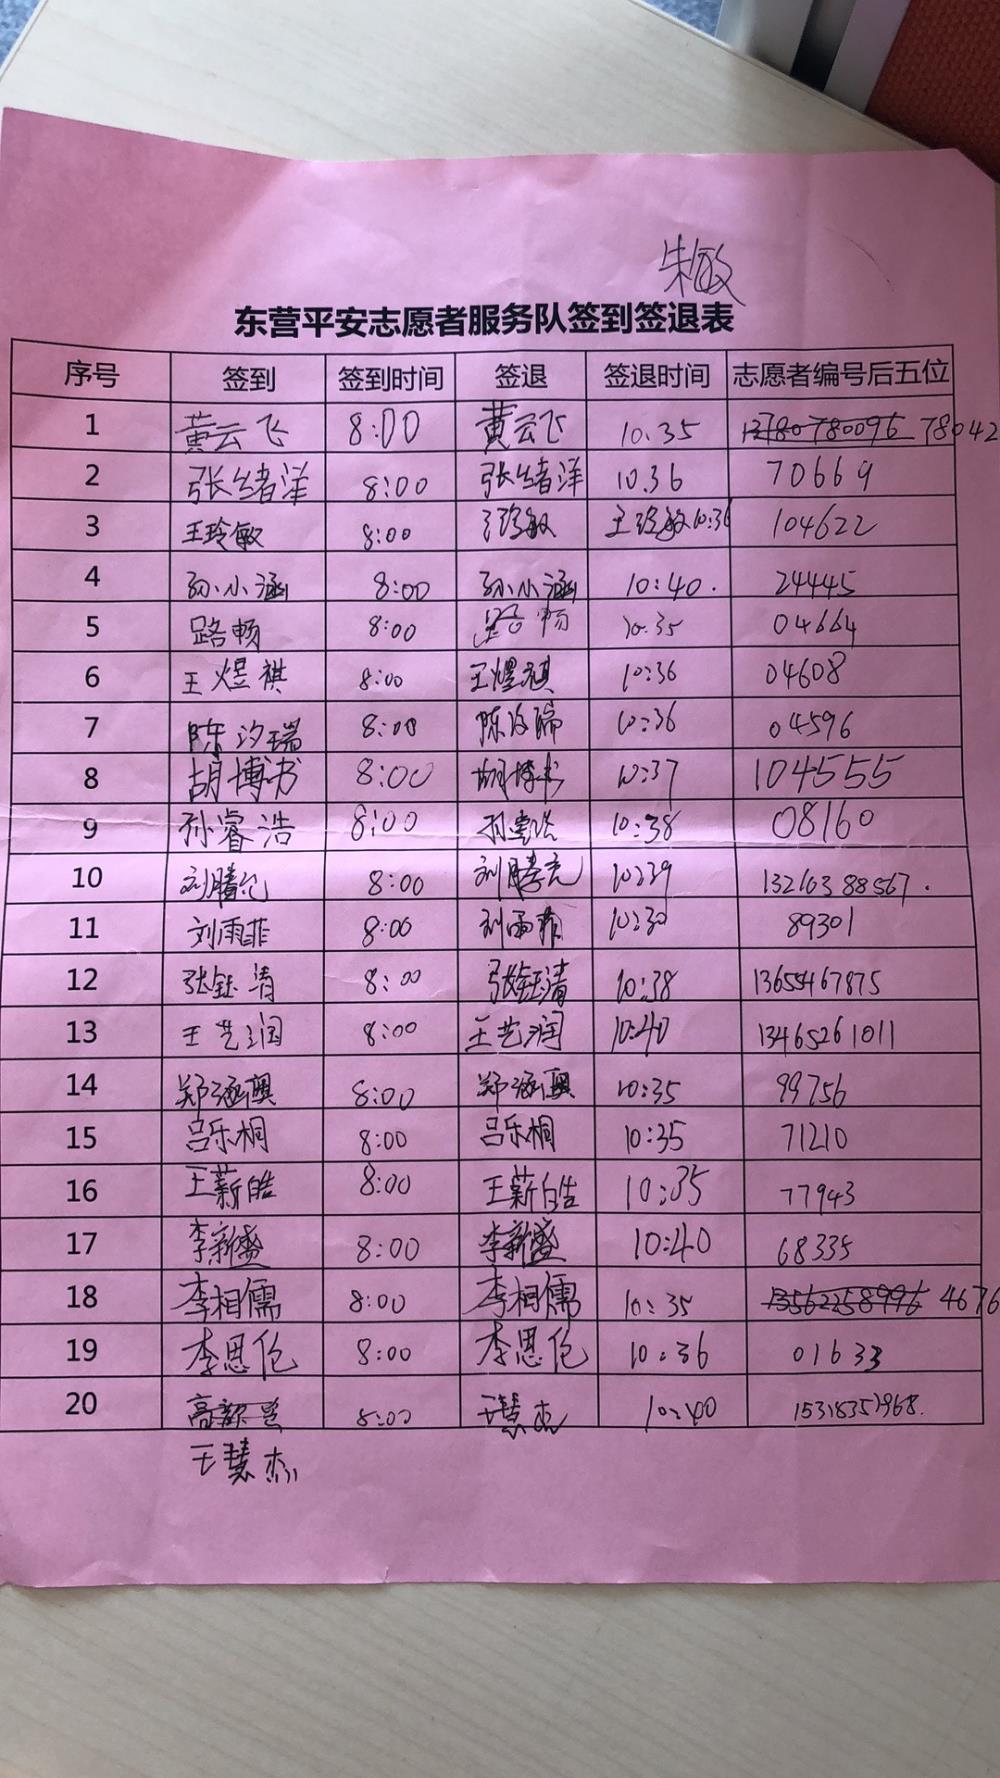 朱敏
东营平安志愿者服务队签到签退表
序号 签到 签到时间 签退 签退时间 志愿者编号后五位
1 黄云飞 8:00 黄云飞 10.35 78042
2 张绪洋 8:00 张绪洋 10.36 70669
3 王玲敏 8:00 王玲敏 王玲敏10:36 104622
4 孙小涵 8:00 孙小涵 10:40. 24445
5 路畅 8:00 路畅 10.35 04664
6 王煜祺 8:00 王煜祺 10:36 04608
7 陈汐瑞 8:00 陈汐瑞 10:36 04596
8 胡博书 8:00 胡博书 10:37 104555
9 孙睿浩 8:00 孙睿浩 10:38 08160
10 8:00 10:39 13216388567.
11 刘雨菲 8:00 刘雨菲 10:30 89301
12 张钰清 8:00 张钰清 10:38 13655467875
13 王艺润 8:00 王艺润 10:40 13465261011
14 郑涵奥 8:00 郑涵奥 10:35 99756
15 吕乐桐 8:00 吕乐桐 10:35 71210
16 王薪皓 8:00 王薪皓 10:35 77943
17 李新盛 8:00 李新盛 10:40 68335
18 李相儒 8:00 李相儒 10:35 4676
19 李思伦 8:00 李思伦 10:36 01633
20 8:00 王慧杰 10:40 15318351968.
王慧杰